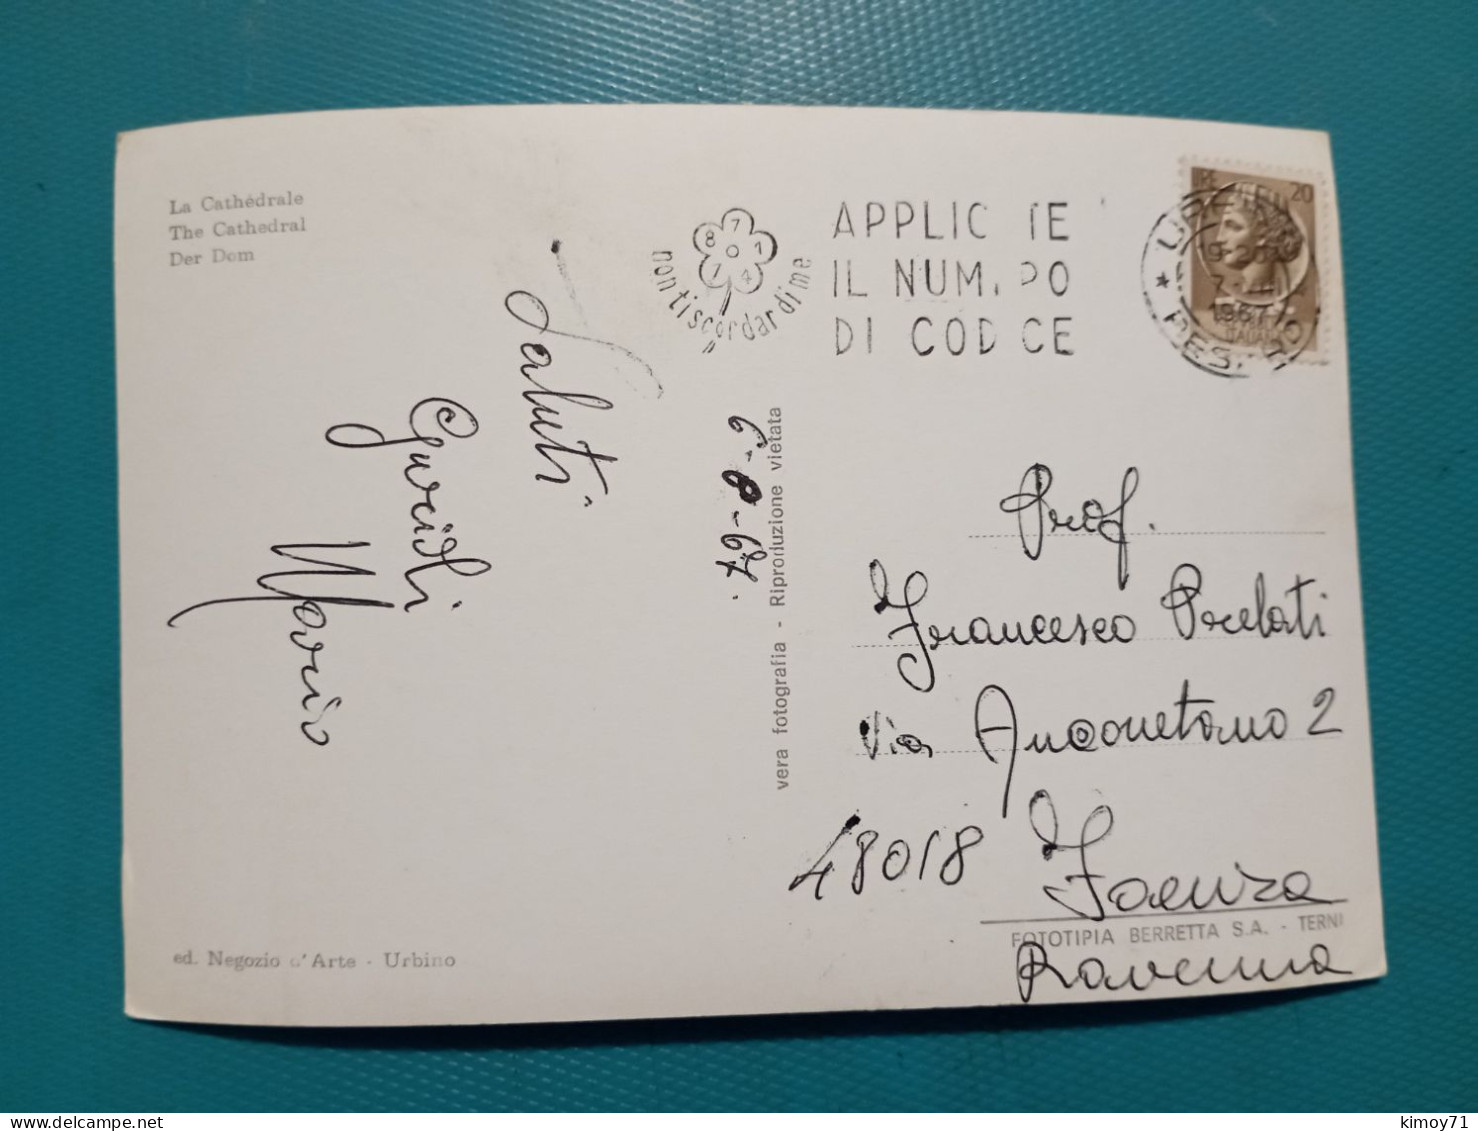 La Cathédrale
The Cathedral
Der Dom
8 7 1 4 1 0
non ti scordar di me
APPLIC TE
IL NUM. PO
DI CODICE
LIRE 20
19-20
1967
PES.
Saluti
Mario
6-8-67.
vera fotografia - Riproduzione vietata
Prof.
Francesco Prelati
Via Anconetano 2
48018 Faenza
FOTOTIPIA BERRETTA S.A. - TERNI
Ravenna
ed. Negozio d'Arte - Urbino
kimoy71